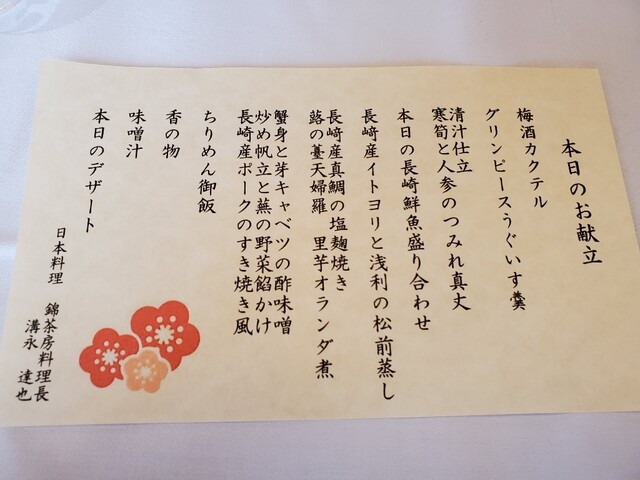 本日のお献立
梅酒カクテル
グリンピースうぐいす羹
清汁仕立
寒筍と人参のつみれ真丈
本日の長崎鮮魚盛り合わせ
長崎産イトヨリと浅利の松前蒸し
長崎産真鯛の塩麹焼き
蕗の薹天婦羅 里芋オランダ煮
蟹身と芽キャベツの酢味噌
炒め帆立と蕪の野菜餡かけ
長崎産ポークのすき焼き風
ちりめん御飯
香の物
味噌汁
本日のデザート
日本料理 錦茶房料理長
溝永 達也